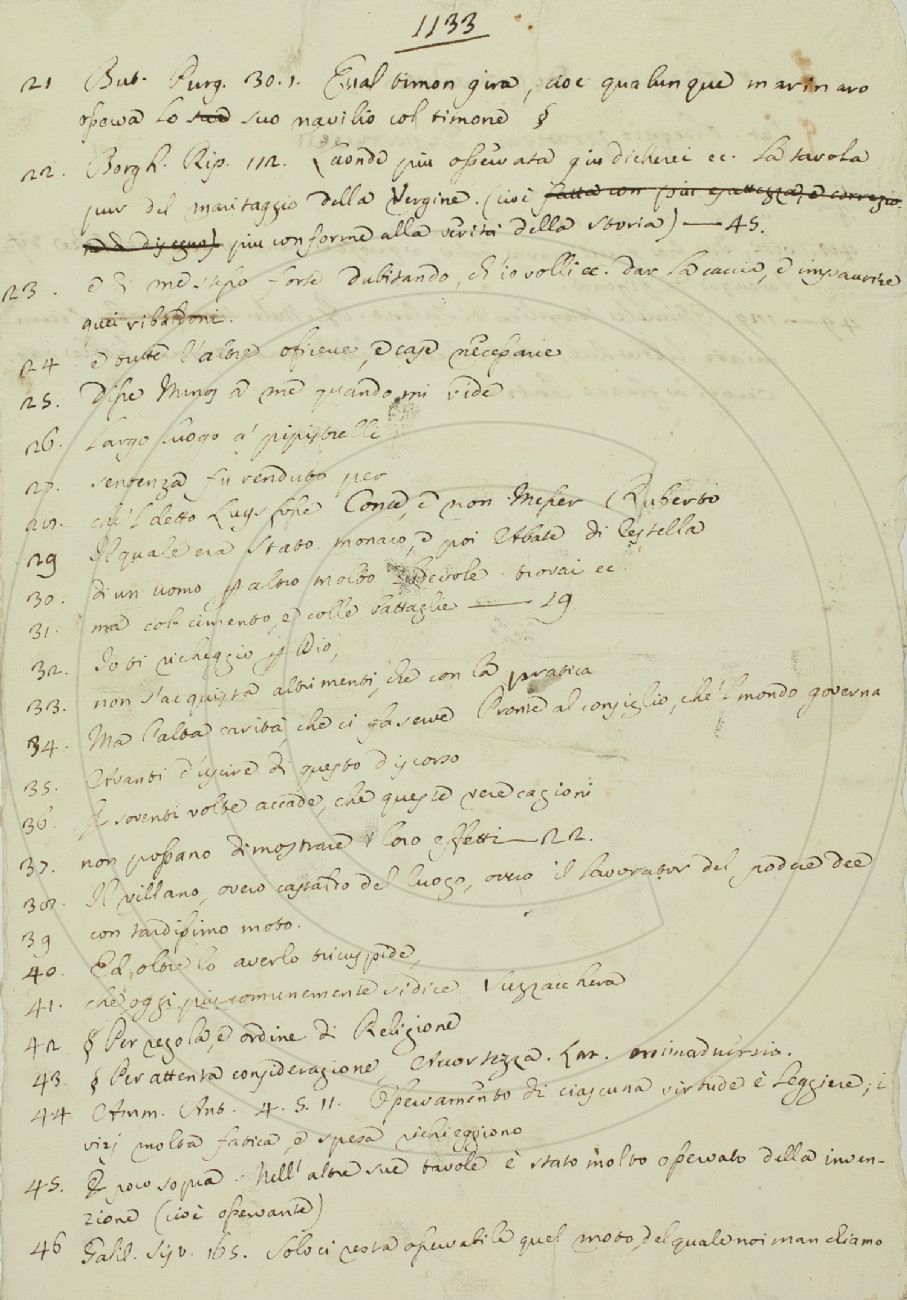 1133
21 But. Purg. 30. 1. Qual timon gira, cioè qualunque marinaro
osserva lo sua suo navilio col timone §
22. Borgh. Rip. 112. Laonde più osservata giudicherei ec. la tavola
pur del maritaggio della Vergine. (cioè fatta con più esattezza, e correzio-
ne di disegno) più conforme alla verità della storia) — 45.
23. e di me stesso forte dubitando, ch'io volli ec. dar la caccia, e impaurire
quei ribaldoni.
24 e tutte l'altre officine, e case necessarie
25. Disse Minos a me quando mi vide
26. Largo luogo a' pipistrelli
27. sentenza fu renduto per
28. che 'l detto Luys fosse Conte, e non Messer Ruberto
29 Il quale era stato monaco, e poi Abate di Cestella
30. di un uomo per altro molto trovai ec.
31. ma col cimento, e colle battaglie — 19
32. Io ti richeggio per Dio,
33. non s'acquista altrimenti, che con la pratica
34. Ma l'alta carità, che ci fa serve Pronte al consiglio, che 'l mondo governa
35. Avanti d'uscire di questo discorso
36. E soventi volte accade, che queste vere cagioni
37. non possano dimostrare i loro effetti — 22.
38. Il villano, overo castaldo del luogo, overo il lavorator del podere dee
39 con tardissimo moto.
40. Ed oltre lo averlo tricuspide,
41. che oggi più comunemente si dice Suzzacchera
42 § Per regola, e ordine di Religione
43. § Per attenta considerazione Accortezza. Lat. animadversio.
44 Amm. Ant. 4. 5. 11. Osservamento di ciascuna virtude è leggiere; i
vizj molta fatica, e spesa richieggiono
45. E poco sopra. Nell'altre sue tavole è stato molto osservato della inven-
zione (cioè osservante)
46 Galil. Sist. 165. Solo ci resta osservabile quel moto, del quale noi manchiamo